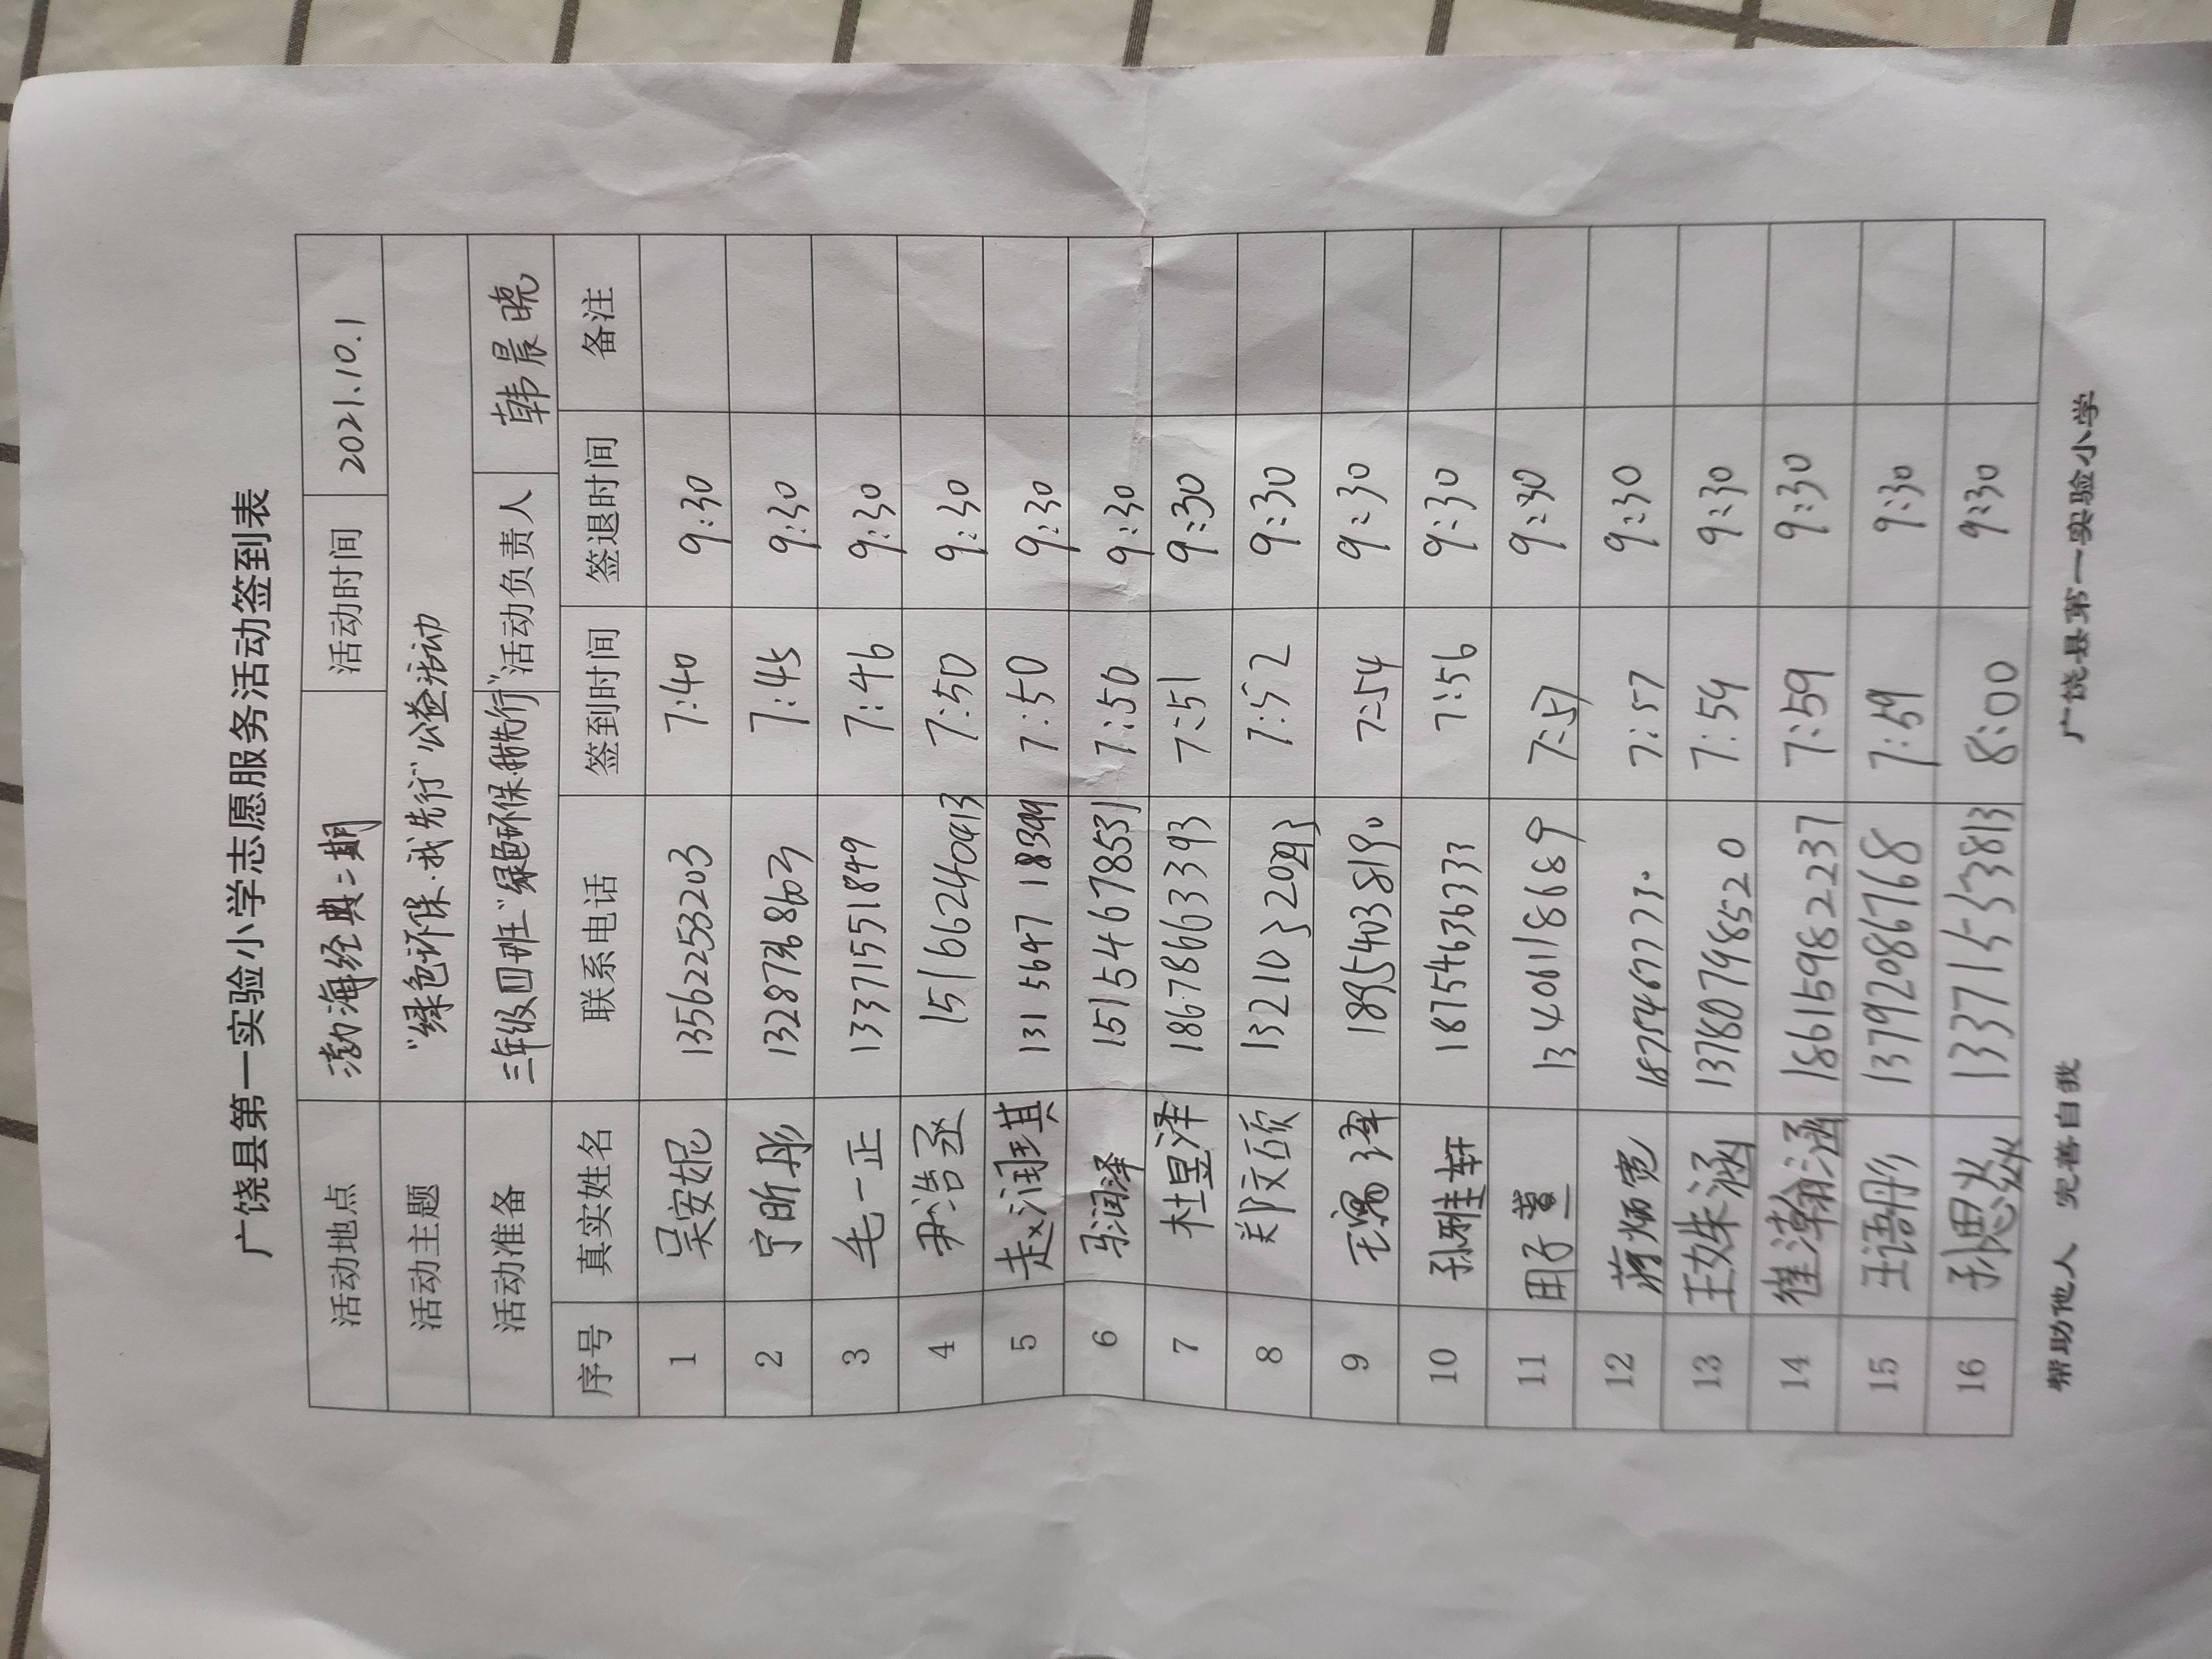 广饶县第一实验小学志愿服务活动签到表
活动地点 渤海经典二期 活动时间 2021.10.1
活动主题 "绿色环保·我先行"公益活动
活动准备 三年级四班"绿色环保·我先行" 活动负责人 韩晨晓
序号 真实姓名 联系电话 签到时间 签退时间 备注
1 吴安妮 13562253203 7:40 9:30
2 宁昕彤 13287368603 7:45 9:30
3 毛一正 13371551849 7:46 9:30
4 尹浩丞 15166240913 7:50 9:30
5 赵润琪 131 5647 18399 7:50 9:30
6 润泽 15154678531 7:50 9:30
7 杜昱泽 18678663393 7:51 9:30
8 郑文硕 7:52 9:30
9 18954038190 7:54 9:30
10 孙雅轩 18754636333 7:56 9:30
11 13406118689 7:57 9:30
12 蒋炳宽 18754677730 7:57 9:30
13 王姝涵 13780798520 7:59 9:30
14 崔瀚涵 18615982237 7:59 9:30
15 王语彤 13792086768 7:59 9:30
16 孙思焱 13371553813 8:00 9:30
帮助他人 完善自我 广饶县第一实验小学